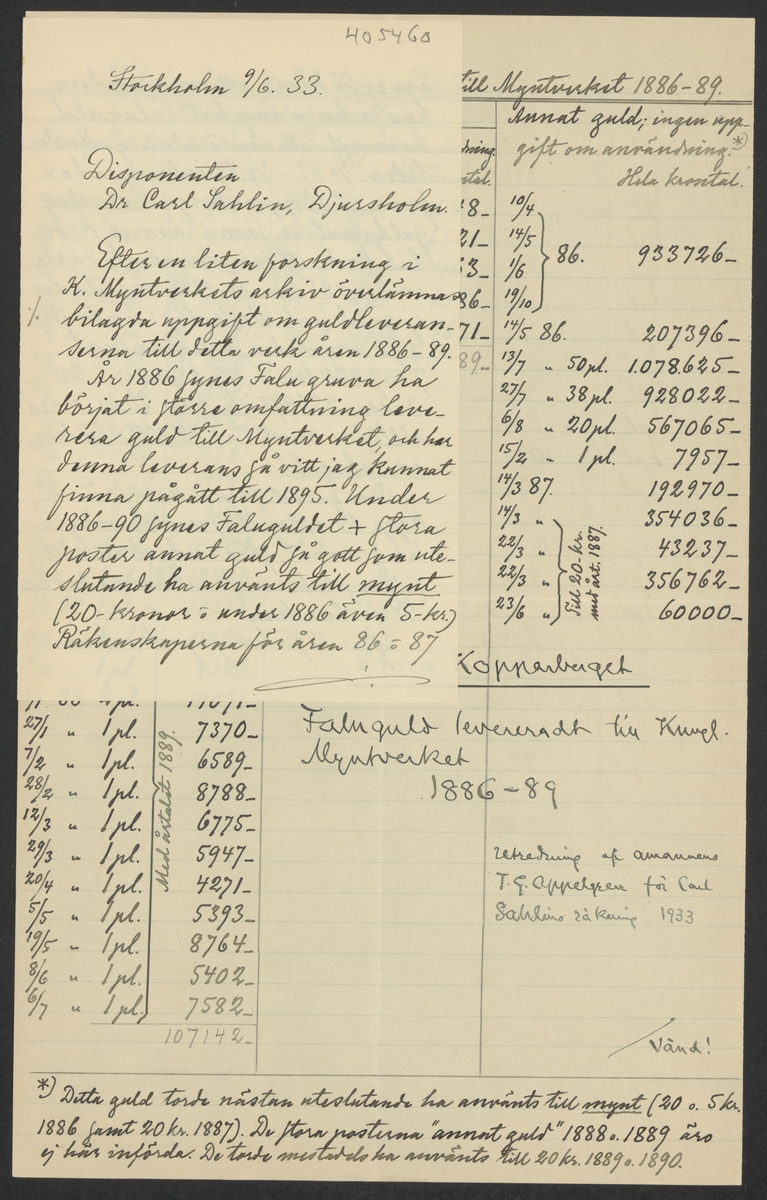 405460
Stockholm 9/6. 33.
Disponenten
Dr Carl Sahlin, Djursholm.
Efter en liten forskning i
K. Myntverkets arkiv överlämnas
·/. bilagda uppgift om guldleveran-
serna till detta verk åren 1886-89.
År 1886 synes Falu gruva ha
börjat i större omfattning leve-
rera guld till Myntverket, och har
denna leverans så vitt jag kunnat
finna pågått till 1895. Under
1886-90 synes Faluguldet + stora
poster annat guld så gott som ute-
slutande ha använts till mynt
(20-kronor o under 1886 även 5-kr.)
Räkenskaperna för åren 86 o 87
./.
till Myntverket 1886-89.
Annat guld; ingen upp-
gift om användning.*)
Hela krontal.
dning.
ntal.
18-
21-
53-
36-
71-
89-
10/4
14/5
1/6
19/10
86. 933726-
14/5 86. 207396-
13/7 " 50 pl. 1.078.625-
27/7 " 38 pl. 928022-
6/8 " 20 pl. 567065-
15/2 " 1 pl. 7957-
14/3 87. 192970-
14/3 " 354036-
22/3 " 43237-
22/3 " 356762-
23/6 " 60000-
Till 20-kr.
med årt. 1887.
Kopparberget
Faluguld levereradt till Kungl.
Myntverket
1886-89
utredning af amanuens
T. G. Appelgren för Carl
Sahlins räkning 1933
Vänd!
27/1 " 1 pl. 7370-
7/2 " 1 pl. 6589-
28/2 " 1 pl. 8788-
12/3 " 1 pl. 6775-
29/3 " 1 pl. 5947-
20/4 " 1 pl. 4271-
5/5 " 1 pl. 5393-
19/5 " 1 pl. 8764-
8/6 " 1 pl. 5402-
6/7 " 1 pl. 7582-
Med årtalet 1889.
107142-
*) Detta guld torde nästan uteslutande ha använts till mynt (20 o. 5 kr.
1886 samt 20 kr. 1887). De stora posterna "annat guld" 1888 o. 1889 äro
ej här införda. De torde mestadels ha använts till 20 kr. 1889 o. 1890.